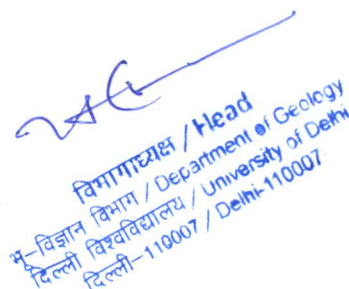 विभागाध्यक्ष / Head
भू-विज्ञान विभाग / Department of Geology
दिल्ली विश्वविद्यालय / University of Delhi
दिल्ली-110007 / Delhi-110007